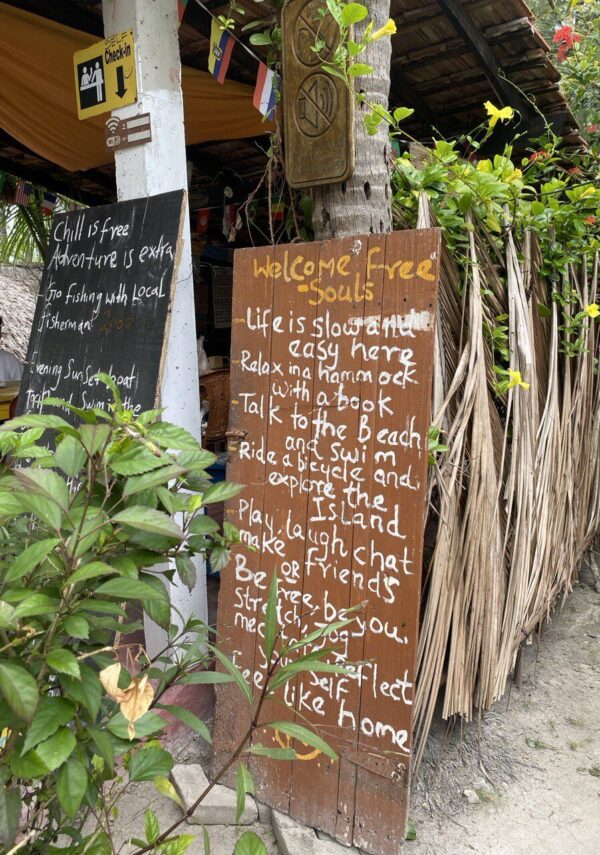 SELF
Check-in
WiFi
Chill is free
Adventure is extra
Go fishing with Local
fisherman
Evening Sunset boat
Swim in the
Welcome free
-Souls
-Life is slow and
easy here
-Relax in a hammock
with a book
-Talk to the Beach
and swim
Ride a bicycle and
explore the
Island
Play, laugh chat
make friends
OR
Be free, be you,
Stretch, Jog
Your Self Reflect
Feel like home